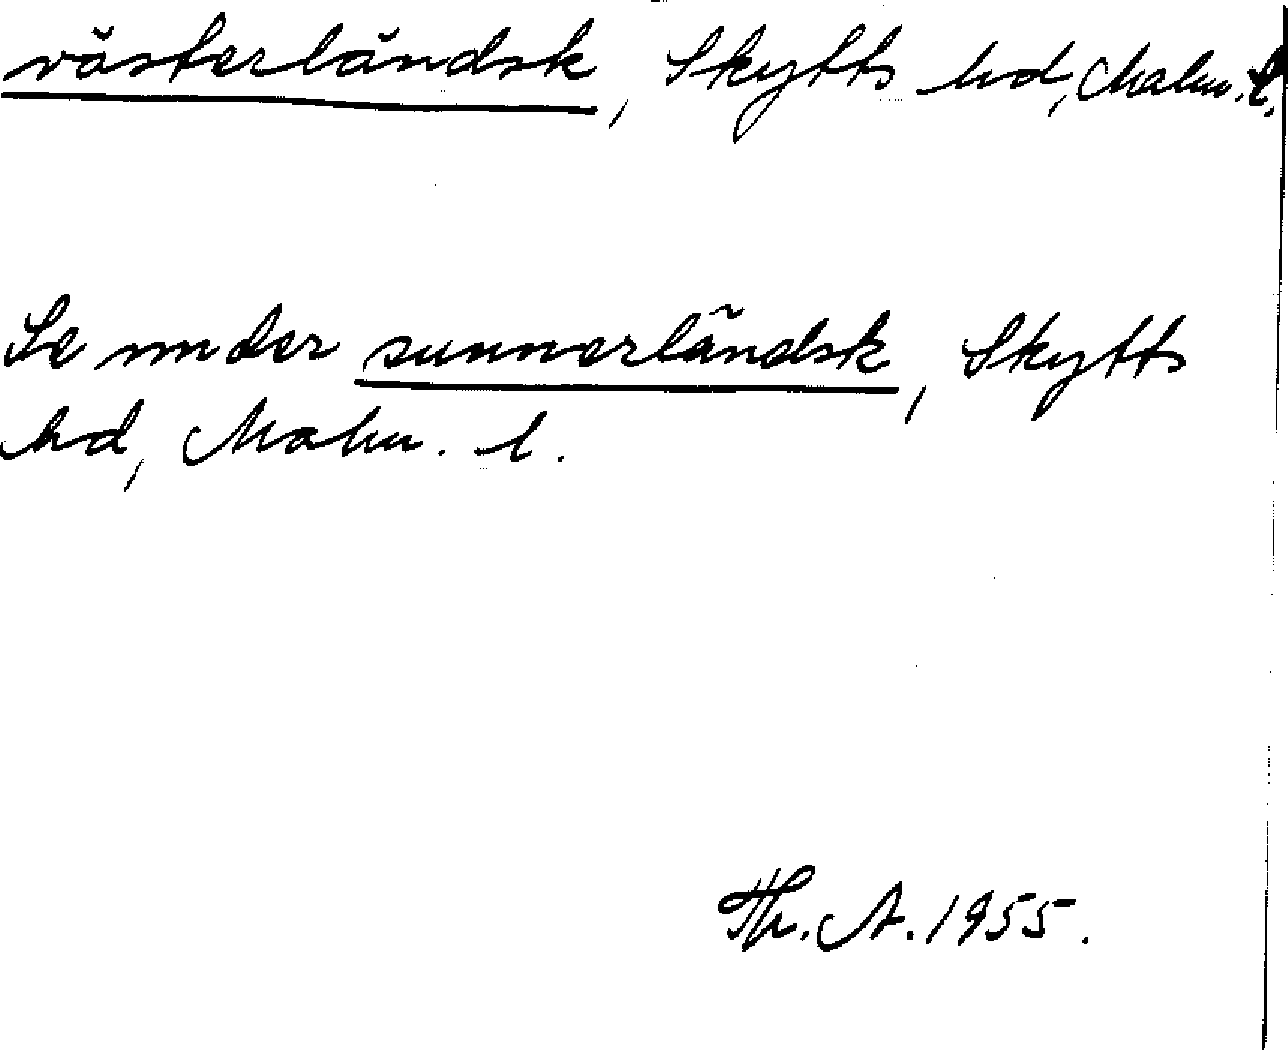 västerländsk, Skytts hd, Malm. l.
Se under sunnerländsk, Skytts
hd, Malm. l.
Th. A. 1955.